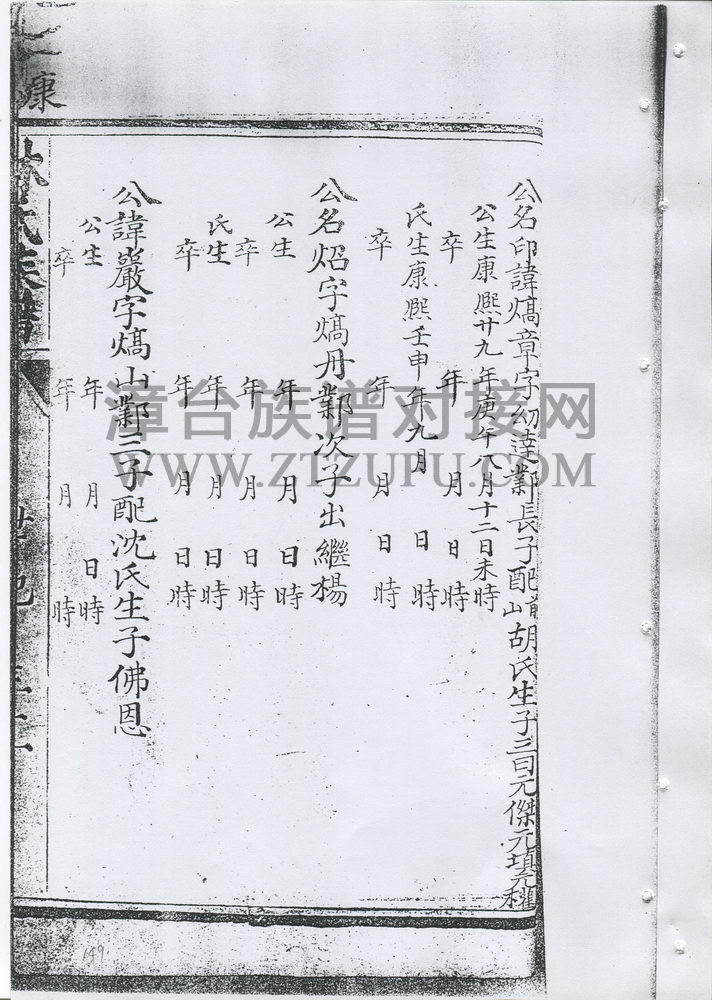 公名印諱熇章字幼達鄴長子配前山胡氏生子三曰元傑元填元權
公生康熙廿九年庚午八月十二日未時
卒 年 月 日時
氏生康熙壬申年九月 日時
卒 年 月 日時
公名炤字熇丹鄴次子出繼楊
公生 年 月 日時
卒 年 月 日時
氏生 年 月 日時
卒 年 月 日時
公諱嚴字熇山鄴三子配沈氏生子佛恩
公生 年 月 日時
卒 年 月 日時
康
氏族譜
149
漳台族谱对接网
WWW.ZTZUPU.COM